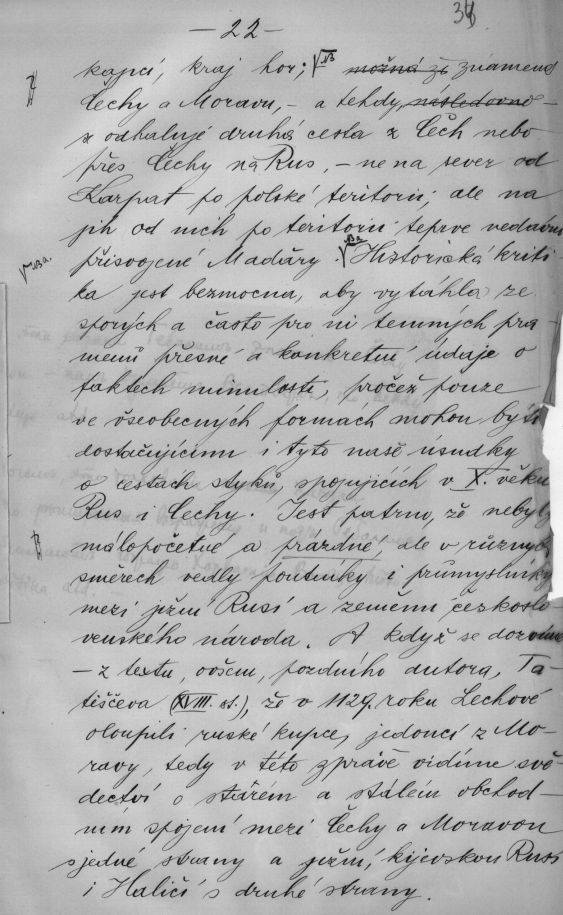 38
— 22 —
kajcí, kraj hor; √NB možná že znamená
Čechy a Moravu, – a tehdy, následovně –
se odhaluje druhá cesta z Čech nebo
přes Čechy na Rus, – ne na sever od
Karpat po polské teritorii; ale na
jih od nich po teritorii teprve nedávno
√NBa. přisvojené Maďary. √NBa Historická kriti-
ka jest bezmocna, aby vytáhla ze
sporých a často pro ni temných pra-
menů přesné a konkretní údaje o
faktech minulosti, pročež pouze
ve všeobecných formách mohou býti
dostačujícími i tyto naše úsudky
o cestách styků, spojujících v X. věku
Rus i Čechy. Jest patrno, že nebyly
málopočetné a prazdné, ale v různých
směrech vedly poutníky i průmyslníky
mezi jižní Rusí a zeměmi českoslo-
venského národa. A když se dozvíme
– z textu, ovšem, pozdního autora, Ta-
tiščeva (XVIII. st.), že v 1129. roku Lechové
oloupili ruské kupce, jedoucí z Mo-
ravy, tedy v této zprávě vidíme svě-
dectví o starém a stálém obchod-
ním spojení mezi Čechy a Moravou
s jedné strany a jižní, kijevskou Rusí
i Haličí s druhé strany.